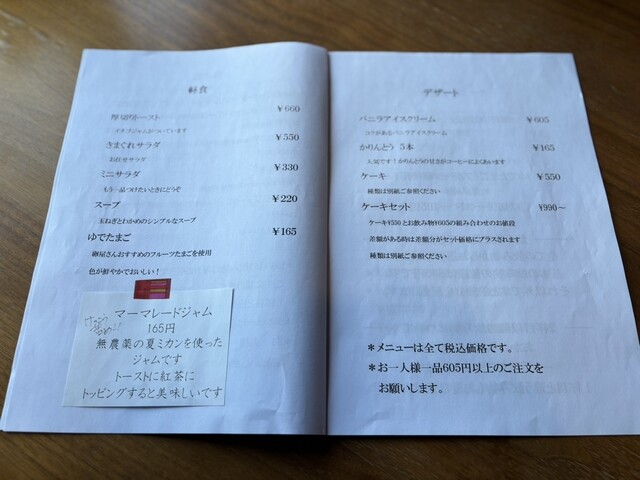 軽食
厚切りトースト ¥660
バタージャムがついています
きまぐれサラダ ¥550
お任せサラダ
ミニサラダ ¥330
もう一品つけたいときにどうぞ
スープ ¥220
玉ねぎとわかめのシンプルなスープ
ゆでたまご ¥165
卵屋さんおすすめのフルーツたまごを使用
色が鮮やかでおいしい！
マーマレードジャム
165円
無農薬の夏ミカンを使った
ジャムです
トーストに紅茶に
トッピングすると美味しいです
デザート
バニラアイスクリーム ¥605
コクがあるバニラアイスクリーム
かりんとう 5本 ¥165
人気です！かりんとうの甘さがコーヒーによくあいます
ケーキ ¥550
種類は別紙ご参照ください
ケーキセット ¥990～
ケーキ¥550とお飲み物¥605の組み合わせのお値段
差額がある時は差額分がセット価格にプラスされます
種類は別紙ご参照ください
＊メニューは全て税込価格です。
＊お一人様一品605円以上のご注文を
お願いします。